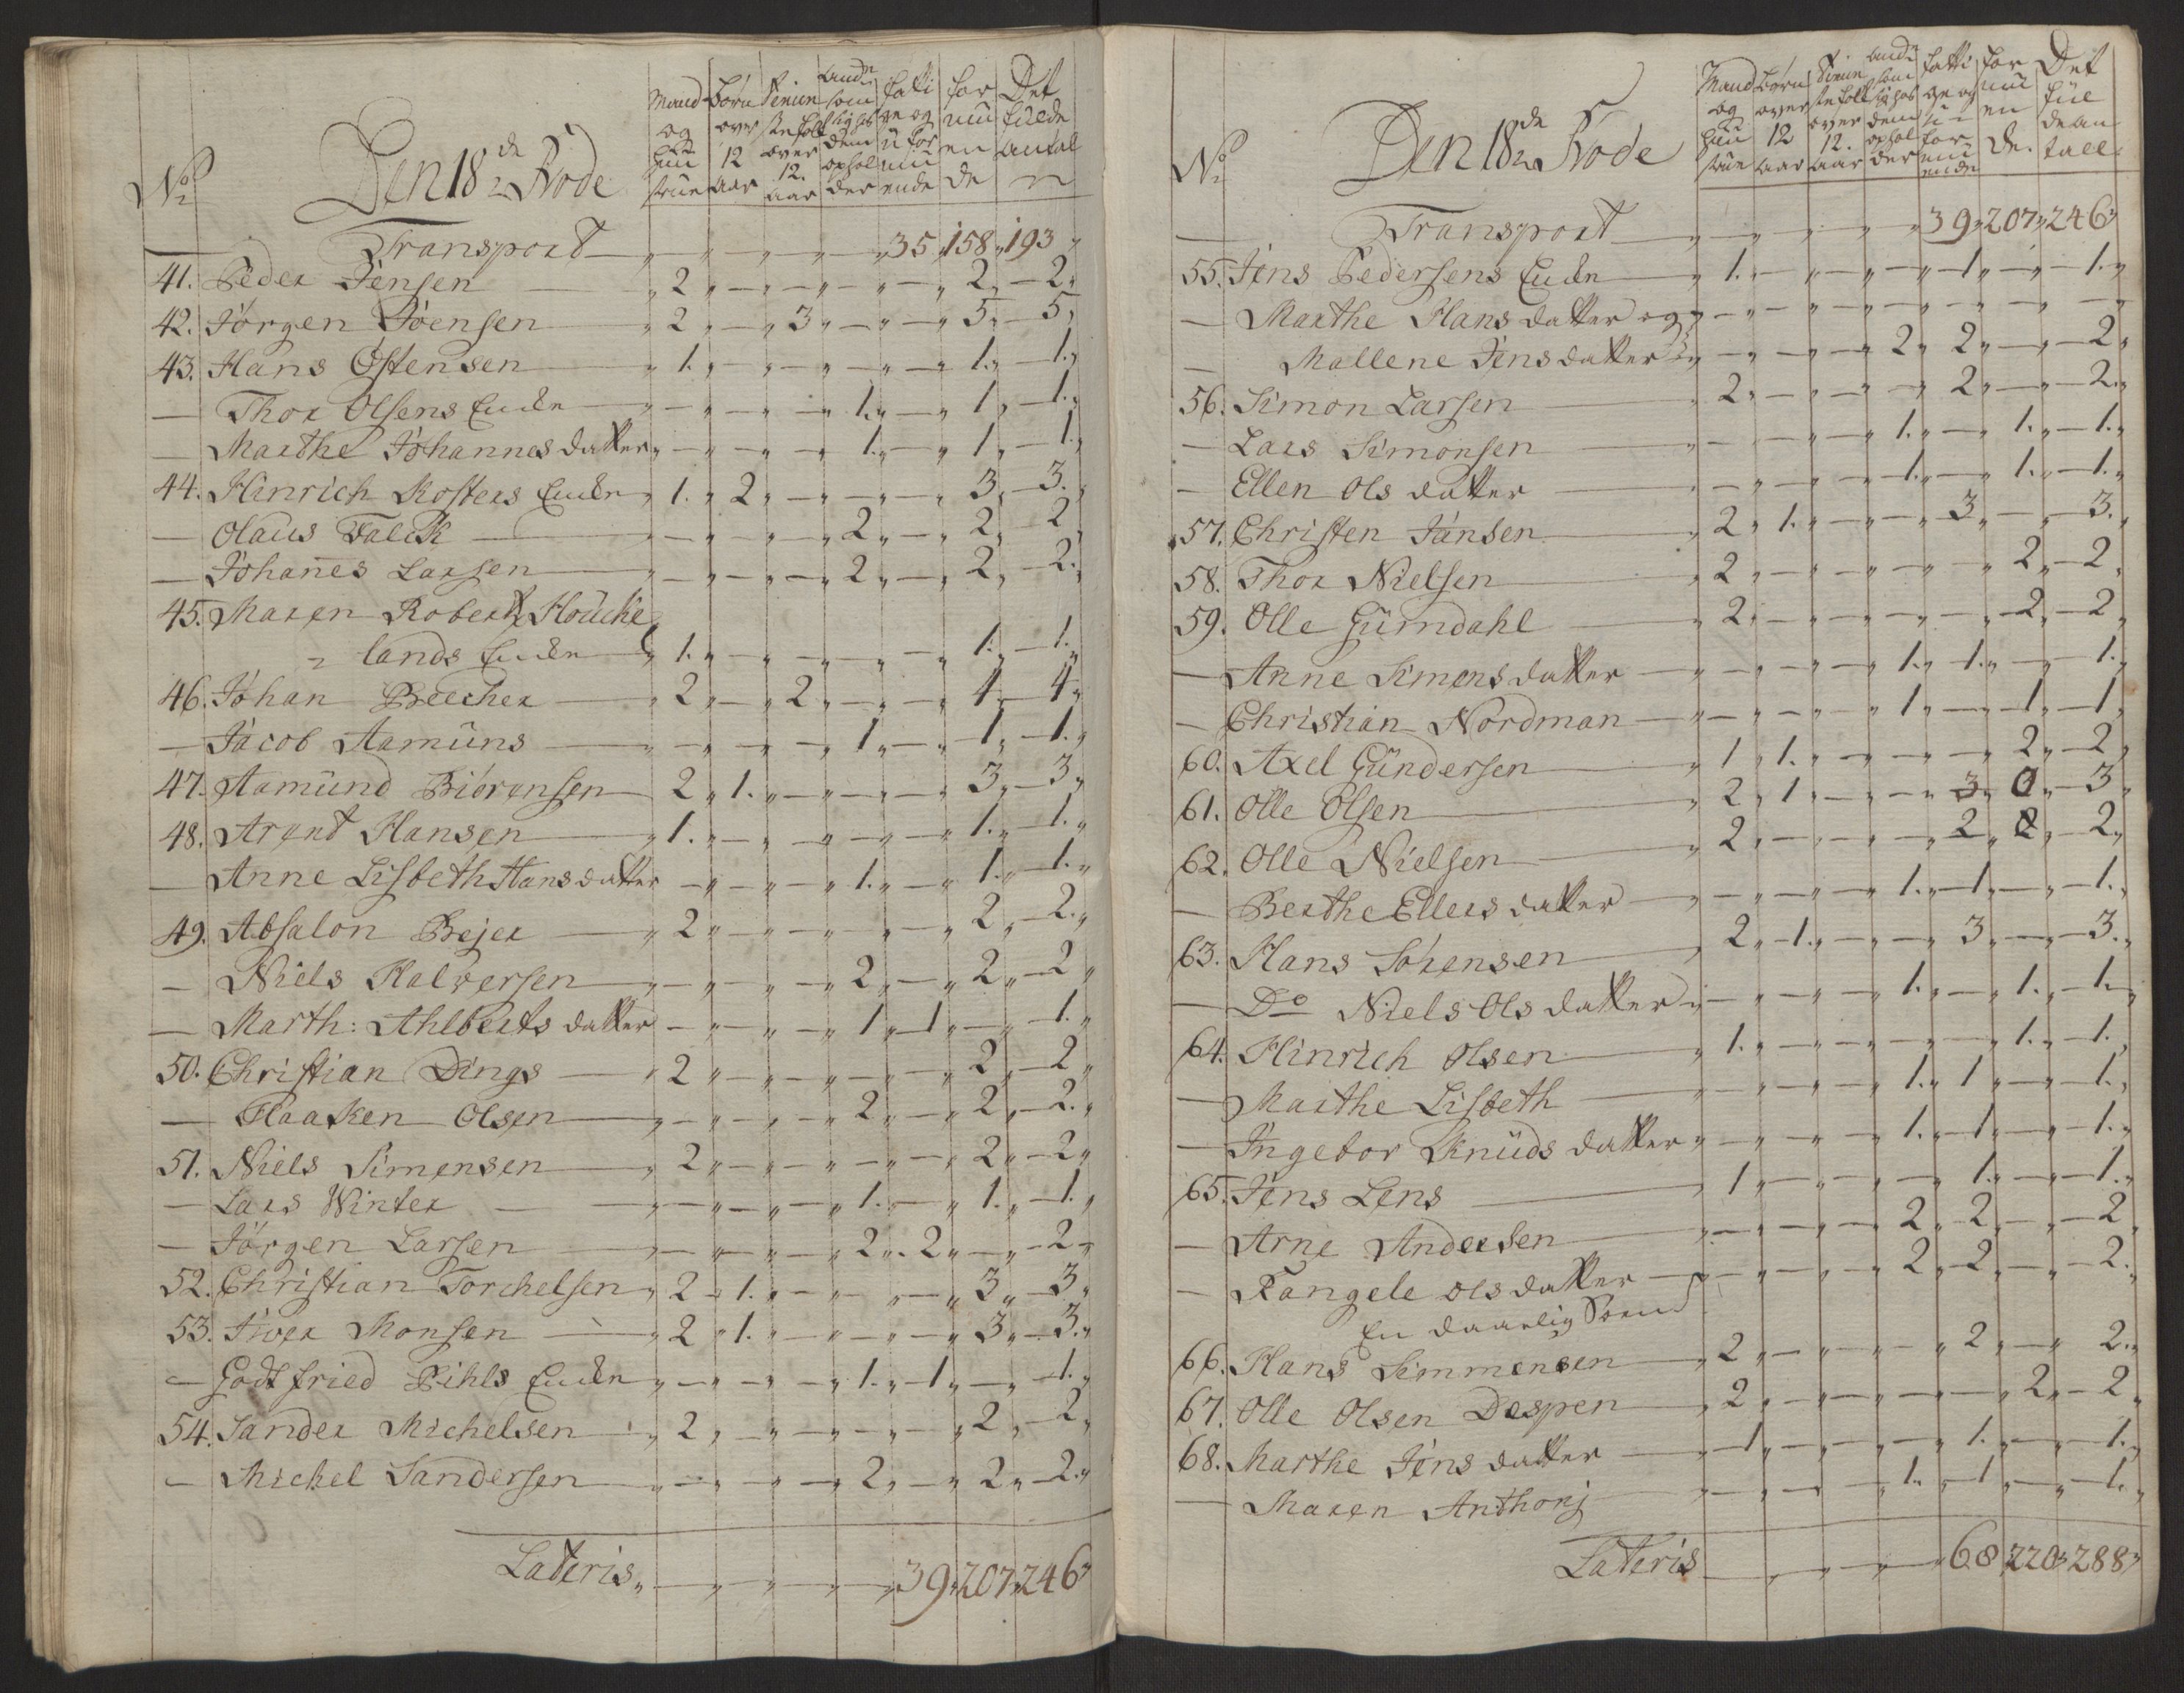 No Den 18de Rode Mand og hustrue Børn over 12 aar Tieniestefolk over 12. aar andre som sig hos dem opholder fatti ge og u for mu ende for mu en de Det fulde antal
Transport 35 158 193
41. Peder Jensen 2 2 2
42. Jörgen Joensen 2 3 5 5
43. Hans Østensen 1. 1. 1.
— Thor Olsens Encke 1. 1 1.
— Marthe Johannesdatter 1. 1 1.
44. Hinrich Kosters Encke 1. 2 3. 3.
— Olaus Falck 2 2 2
— Johannes Larsen 2 2 2.
45. Maren Robert Houcke
lands Encke 1. 1. 1.
46. Johan Beecher 2 2 4 4
— Jacob Aamuns 1 1 1.
47. Aamund Biörensen 2 1. 3 3
48. Arent Hansen 1. 1. 1.
— Anne Lisbeth Hansdatter 1. 1. 1.
49. Absalon Bejer 2 2 2.
— Niels Halversen 2 2 2
— Marth: Ahlberts datter 1 1 1.
50. Christian Dings 2 2 2
— Haaken Olsen 2 2 2.
51. Niels Simensen 2 2 2
— Lars Winter 1. 1. 1.
— Jörgen Larsen 2 2 2
52. Christian Torchelsen 2 1. 3 3
53. Iver Monsen 2 1. 3 3.
— Godtfried Pihls Encke 1. 1 1.
54. Sander Michelsen 2 2 2
— Michel Sandersen 2 2 2.
Lateris 39 207 246
No Den 18de Rode Mand og hustrue Børn over 12 aar Tieniestefolk over 12. aar andre som sig hos dem opholder fatti ge og u for mu ende for mu en de. Det fulde antall
Transport 39 207 246
55. Jens Pedersens Encke 1. 1 1.
— Marthe Hans datter og
— Mallene Jensdatter 2 2 2
56. Simon Larsen 2 2 2.
— Lars Simonsen 1. 1. 1.
— Ellen Ols datter 1. 1. 1.
57. Christen Jansen 2 1. 3 3.
58. Thor Nielsen 2 2 2
59. Olle Gumdahl 2 2 2
— Anne Simensdatter 1. 1. 1.
— Christian Nordman 1. 1 1
60. Axel Gundersen 1 1. 2 2
61. Olle Olsen 2 1 3 0 3
62. Olle Nielsen 2 2 2
— Berthe Ellers datter 1. 1 1.
63. Hans Sörensen 2 1. 3 3.
— Do Niels Ols datter 1. 1. 1.
64. Hinrich Olsen 1. 1. 1.
— Marthe Lisbeth 1. 1 1.
— Ingebor Knuds datter 1. 1 1.
65. Jens Lens 1 1. 1.
— Arne Andersen 2 2 2
— Rangele olsdatter 2 2 2.
En daarlig
66. Hans Simmensen 2 2 2.
67. Olle Olsen Despen 2 2 2
68. Marthe Jens datter 1 1. 1.
— Maren Anthonj 1. 1 1.
Lateris 68 220 288